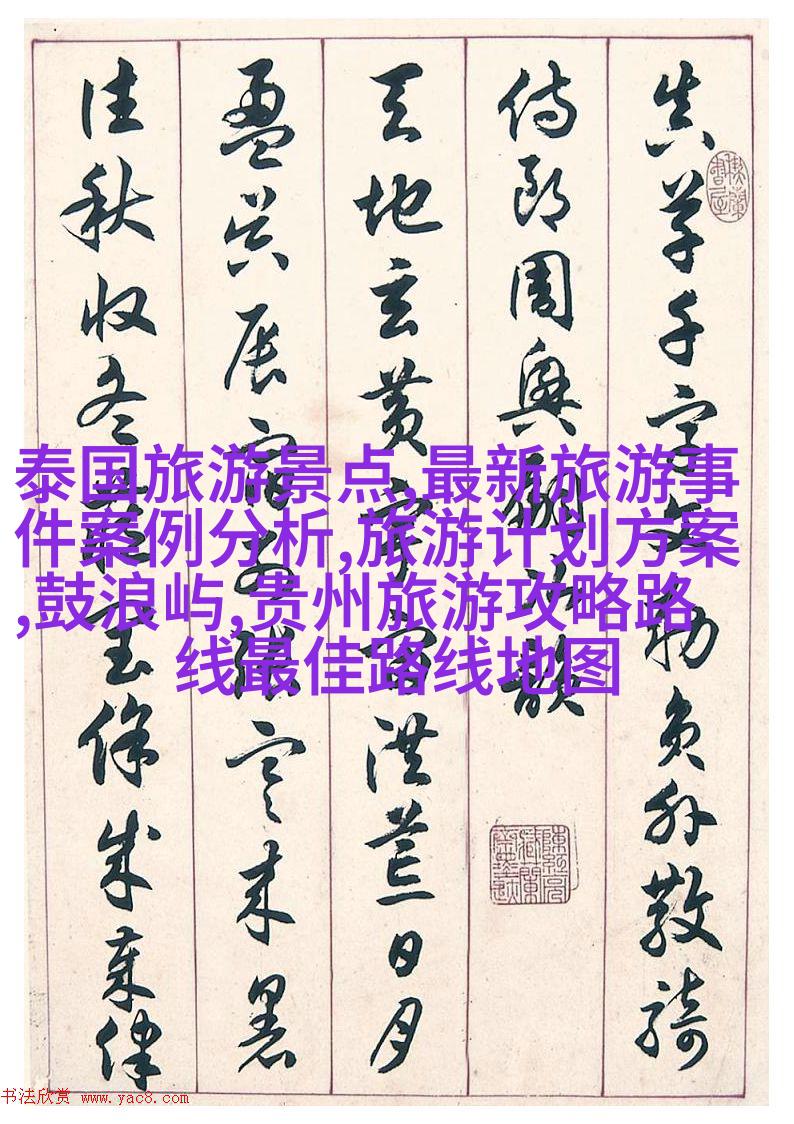 真草千字文勅員外散騎
侍郎周興嗣次韻
天地玄黄宇宙洪荒日月
盈昃辰宿列張寒来暑
往秋收冬藏閏餘成歲律
泰国旅游景点,最新旅游事
件案例分析,旅游计划方案
,鼓浪屿,贵州旅游攻略路
线最佳路线地图
书法欣赏 www.yac8.com